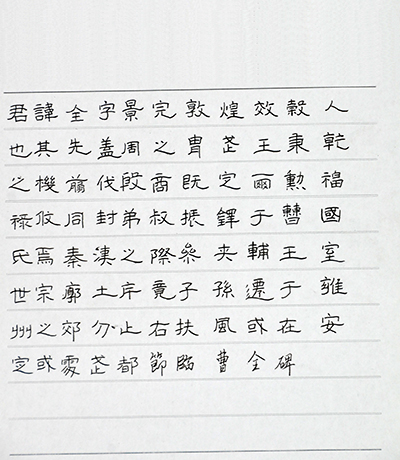 君諱全字景完敦煌效穀人
也其先蓋周之胄武王秉乾
之機翦伐殷商既定爾勳福
祿攸同封弟叔振鐸于曹國
氏焉秦漢之際參夾輔王室
世宗廓土斥竟子孫遷于雍
州之郊分止右扶風或在安
定或處武都節臨曹全碑